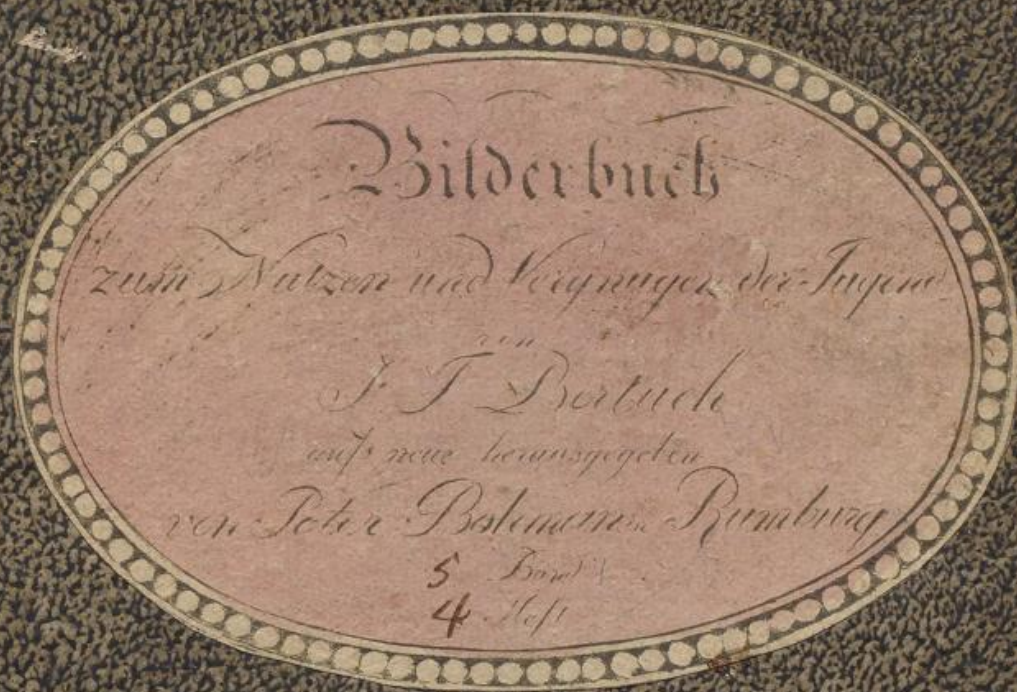 Bilderbuch
zum Nutzen und Vergnugen der Jugend
von
J T Bertuch
aufs neue herausgegeben
von Peter Bohmann in Rumburg
5 Band
4 Heft